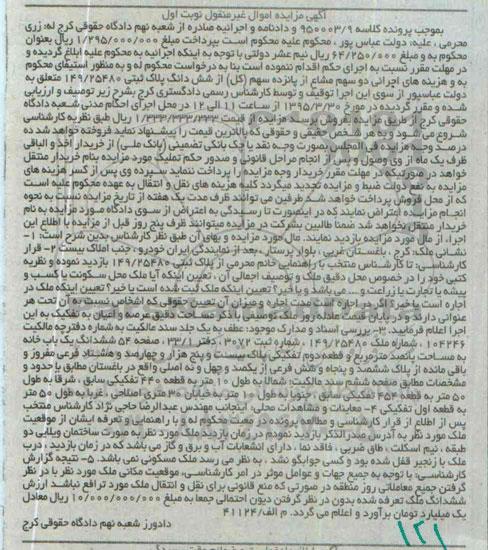 آگهی مزایده اموال غیرمنقول نوبت اول
بموجب پرونده کلاسه ۹۵۰۰۰۳/۹ و دادنامه و اجرائیه صادره از شعبه نهم دادگاه حقوقی کرج له: زری
محرمی ، علیه: دولت عباس پور ، محکوم علیه محکوم است بپرداخت مبلغ ۱/۲۹۵/۰۰۰/۰۰۰ ریال بعنوان
محکوم به و مبلغ ۶۴/۲۵۰/۰۰۰ ریال نیم عشر دولتی با توجه به اینکه اجرائیه به محکوم علیه ابلاغ گردیده و
در مهلت مقرر نسبت به اجرای حکم اقدام ننموده است بنا به درخواست محکوم له و به منظور استیفای محکوم
به و هزینه های اجرائی دو سهم مشاع از پانزده سهم (کل) از شش دانگ پلاک ثبتی ۱۴۹/۲۵۴۸۰ متعلق به
دولت عباسپور از سوی این اجرا توقیف و توسط کارشناس رسمی دادگستری کرج بشرح زیر توصیف و ارزیابی
شده و مقرر گردیده در مورخ ۱۳۹۵/۳/۳۰ از ساعت ۱۱ الی ۱۲ در محل اجرای احکام مدنی شعبه دادگاه
حقوقی کرج از طریق مزایده بفروش برسد مزایده از قیمت ۱/۳۳۳/۳۳۳/۳۳۳ ریال طبق نظریه کارشناسی
شروع می شود و به هر شخص حقیقی و حقوقی که بالاترین قیمت را پیشنهاد نماید فروخته خواهد شد ده
درصد وجه مزایده فی المجلس بصورت وجه نقد یا چک بانکی تضمینی (بانک ملی) از خریدار اخذ و الباقی
ظرف یک ماه از وی وصول و پس از انجام مراحل قانونی و صدور حکم تملیک مورد مزایده بنام خریدار منتقل
خواهد شد در صورتیکه در مهلت مقرر خریدار وجه مزایده را پرداخت ننماید سپرده وی پس از کسر هزینه های
مزایده به نفع دولت ضبط و مزایده تجدید میگردد کلیه هزینه های نقل و انتقال به عهده محکوم علیه است
که از محل فروش پرداخت خواهد شد طرفین می توانند ظرف مدت یک هفته از تاریخ مزایده نسبت به نحوه
انجام مزایده اعتراض نمایند که در اینصورت تا رسیدگی به اعتراض از سوی دادگاه مورد مزایده به نام
خریدار منتقل نخواهد شد ضمنا طالبین بشرکت در مزایده میتوانند ظرف پنج روز قبل از مزایده با اطلاع این
اجرا، از مال مورد مزایده بازدید نمایند. مال مورد مزایده و بهای آن طبق نظر کارشناس بدین شرح است: ۱-
نشانی ملک: کرج ، باغستان غربی ، بلوار پرستار ، بعد از نمایندگی ایران خودرو ، جنب املاک بیست ۲- قرار
کارشناسی: تا کارشناس منتخب با راهنمایی خانم محرمی از پلاک ثبتی ۱۴۹/۲۵۴۸۰ بازدید نموده و نظریه
کتبی خود را در خصوص محل دقیق ملک و توصیف اجمالی آن ، تعیین اینکه آیا ملک محل سکونت یا کسب و
پیشه یا تجارت یا زراعت و ... می باشد و یا خیر؟ تعیین اینکه ملک ثبت شده است یا خیر؟ تعیین اینکه ملک در
اجاره است یا خیر؟ اگر در اجاره است مدت اجاره و میزان آن تعیین حقوقی که اشخاص نسبت به آن تحت هر
عنوانی دارند و در پایان قیمت عادله روز ملک توصیفی با ذکر مساحت دقیق عرصه و اعیان به تفکیک به این
اجرا اعلام فرمایید. ۳- بررسی اسناد و مدارک موجود: عطف به یک جلد سند مالکیت به شماره دفترچه مالکیت
۱۰۴۲۴۶ ، شماره ملک ۱۴۹/۲۵۴۸۰ ، شماره ثبت ۳۰۷۲ ، دفتر ۳۳/۱ ، صفحه ۵۴ ششدانگ یک باب خانه
به مساحت پانصد مترمربع و قطعه دوم تفکیکی پلاک بیست و پنج هزار و چهارصد و هشتاد فرعی مفروز و
باقی مانده از پلاک ششصد و پنجاه و شش فرعی از یکصد و چهل و نه اصلی واقع در باغستان مطابق با حدود و
مشخصات مطابق صفحه ششم سند مالکیت: شمالا به طول ۱۰ متر به قطعه ۴۴۰ تفکیکی سابق ، شرقا به طول
۵۰ متر به قطعه ۴۵۴ تفکیکی سابق ، جنوبا به طول ۱۰ متر به خیابان ۳۰ متری اصلاحی ، غربا به طول ۵۰ متر
به قطعه اول تفکیکی ۴- معاینات و مشاهدات محلی: اینجانب مهندس عبدالرضا حاجی نژاد کارشناس منتخب
پس از اطلاع از قرار کارشناسی و مطالعه پرونده در معیت محکوم له و با راهنمایی و تعرفه ایشان از موقعیت
ملک مورد نظر به آدرس صدرالذکر بازدید نمودم در زمان بازدید ملک مورد نظر به صورت ساختمان ویلایی دو
طبقه ، نیم اسکلت ، طاق ضربی ، فاقد نما ، دارای انشعابات آب و برق و گاز می باشد که در زمان بازدید ، درب
ملک با زنجیر قفل شده بود و کسی جوابگو نشد . به نظر می رسد ملک مسکونی نمی باشد. ۵- نتیجه گزارش
کارشناسی: با توجه به جمیع جهات و عوامل موثر در امر کارشناسی، موقعیت مکانی ملک مورد نظر با در نظر
گرفتن جمیع معاملاتی روز منطقه در صورتی که منع قانونی برای نقل و انتقال ملک مورد ترافع نباشد ارزش
ششدانگ ملک تعرفه شده بدون در نظر گرفتن دیون احتمالی جمعا به مبلغ ۱۰/۰۰۰/۰۰۰/۰۰۰ ریال معادل
یک میلیارد تومان برآورد و اعلام می گردد. م الف/۴۱۱۲۴
دادورز شعبه نهم دادگاه حقوقی کرج
۱۲۱